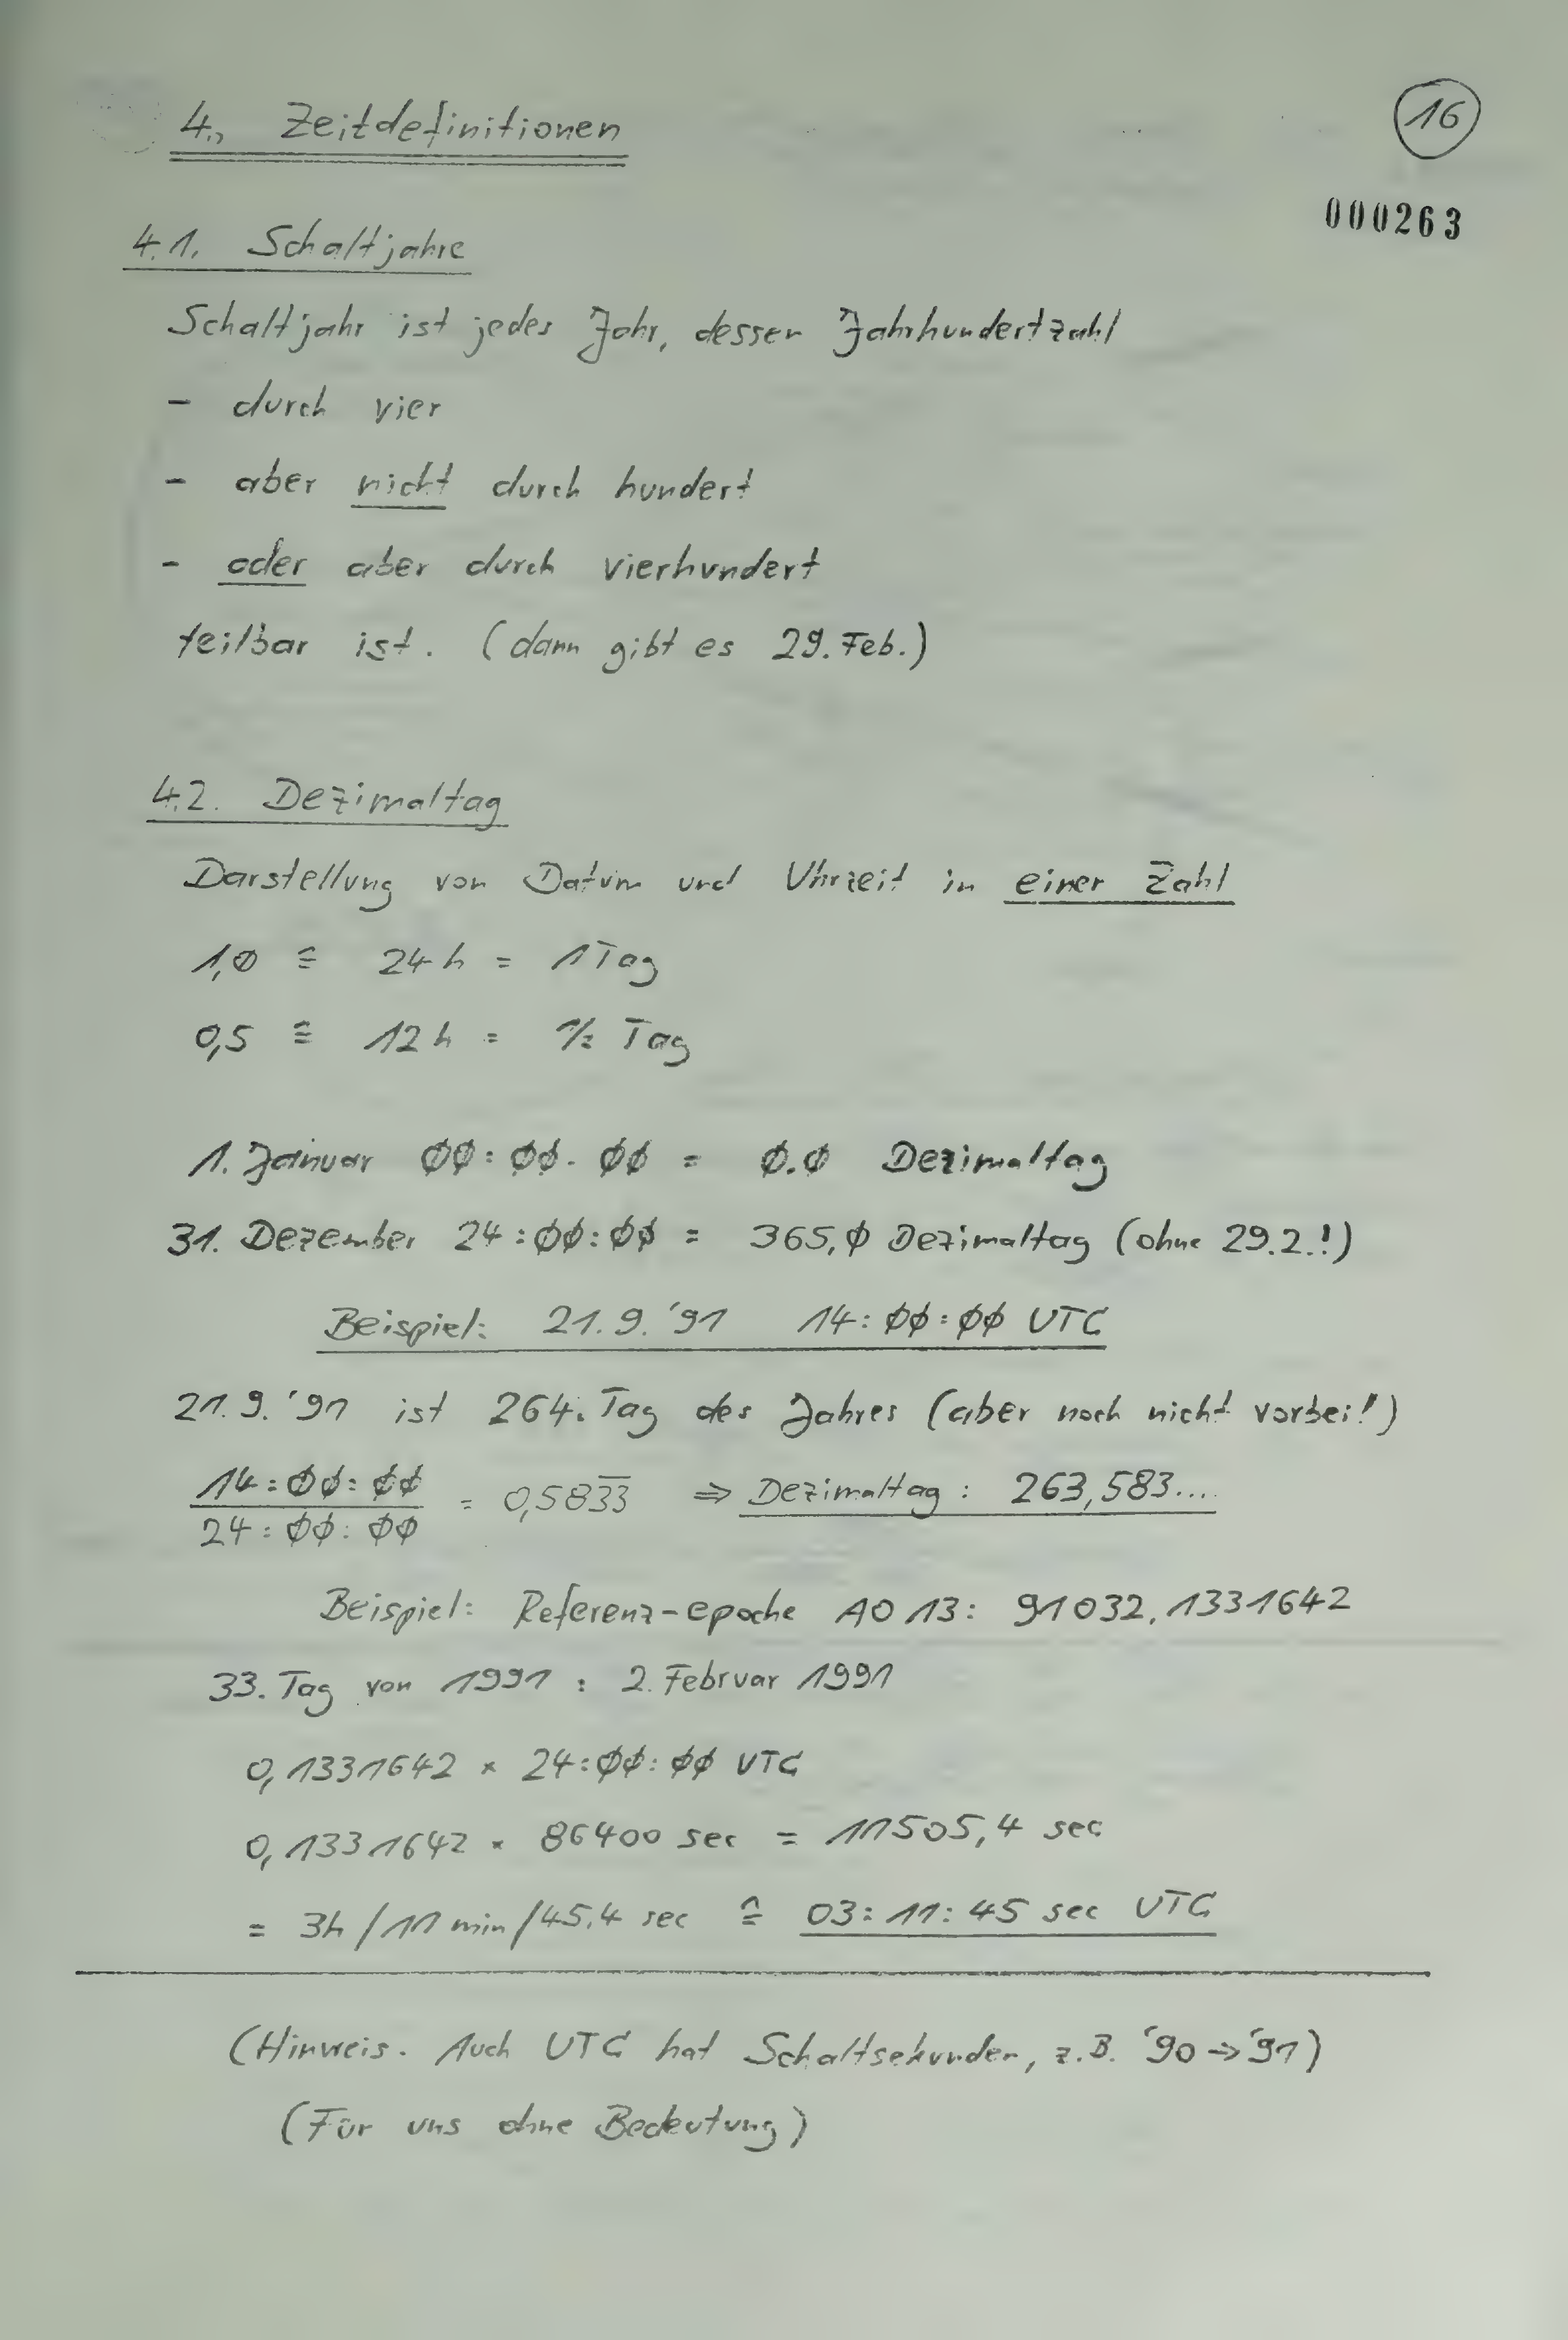 4., Zeitdefinitionen
16
000263
4.1. Schaltjahre
Schaltjahr ist jedes Jahr, dessen Jahrhundertzahl
- durch vier
- aber nicht durch hundert
- oder aber durch vierhundert
teilbar ist. (dann gibt es 29. Feb.)
4.2. Dezimaltag
Darstellung von Datum und Uhrzeit in einer Zahl
1,0 ≙ 24 h = 1 Tag
0,5 ≙ 12 h = 1/2 Tag
1. Januar 00:00.00 = 0.0 Dezimaltag
31. Dezember 24:00:00 = 365,0 Dezimaltag (ohne 29.2.!)
Beispiel: 21.9.'91 14:00:00 UTC
21.9.'91 ist 264. Tag des Jahres (aber noch nicht vorbei!)
14:00:00 / 24:00:00 = 0,583̅3̅ ⇒ Dezimaltag: 263,583....
Beispiel: Referenz-epoche AO 13: 91032.1331642
33. Tag von 1991 : 2. Februar 1991
0,1331642 × 24:00:00 UTC
0,1331642 × 86400 sec = 11505,4 sec
= 3h/11 min/45.4 sec ≙ 03:11:45 sec UTC
(Hinweis. Auch UTC hat Schaltsekunden, z.B. '90→'91)
(Für uns ohne Bedeutung)